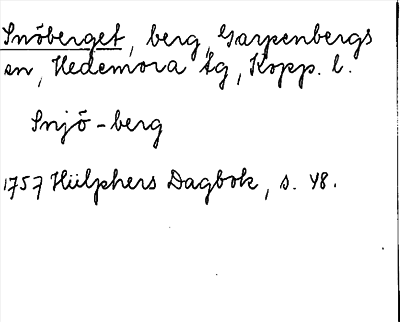 Snöberget, berg, Garpenbergs
sn, Hedemora tg, Kopp. l.
Snjö-berg
1757 Hülphers Dagbok, s. 48.